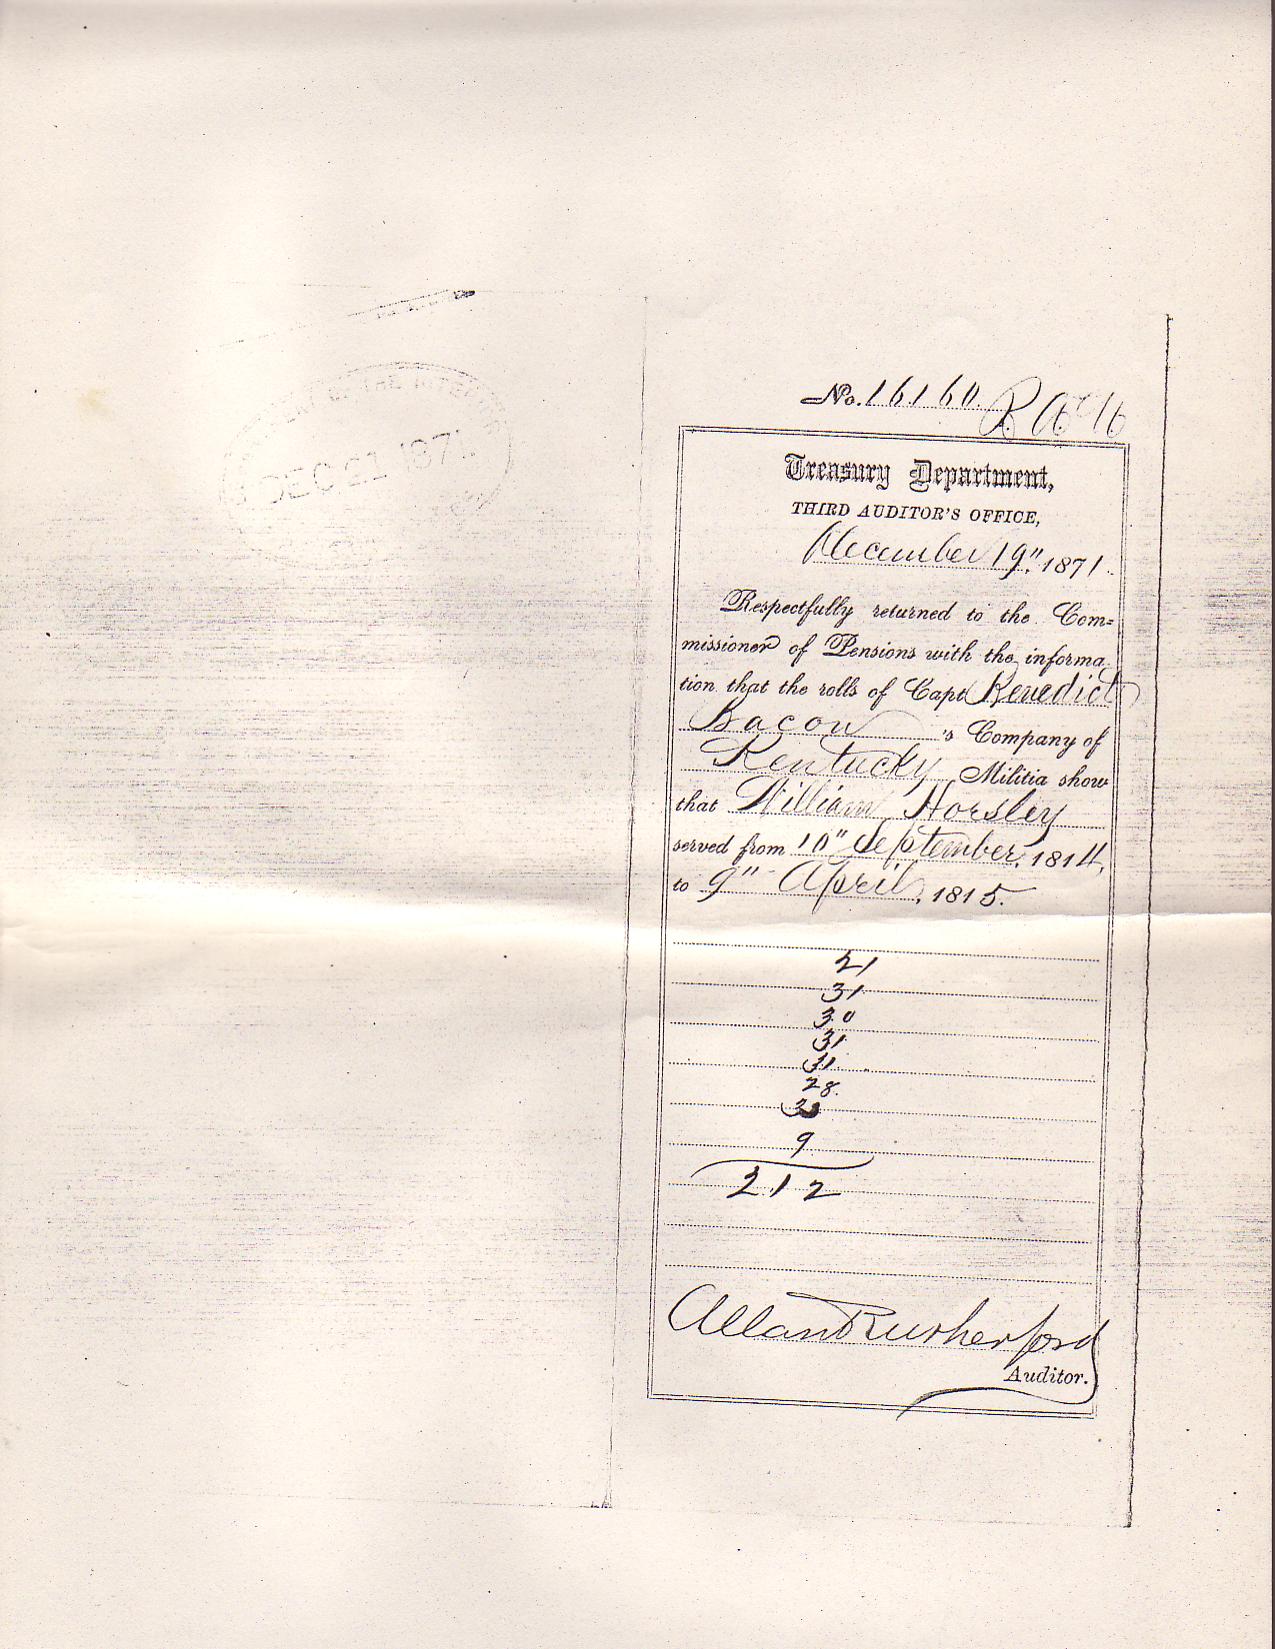 DEC 21 1871
No. 16160.
Treasury Department,
THIRD AUDITOR'S OFFICE,
December 19" 1871.
Respectfully returned to the Com=
missioner of Pensions with the informa
tion that the rolls of Capt Benedict
Bacon 's Company of
Kentucky Militia show
that William Horsley
served from 10" September, 1814,
to 9" April, 1815.
21
31
30
31
31
28.
9
212
Allan Rutherford
Auditor.